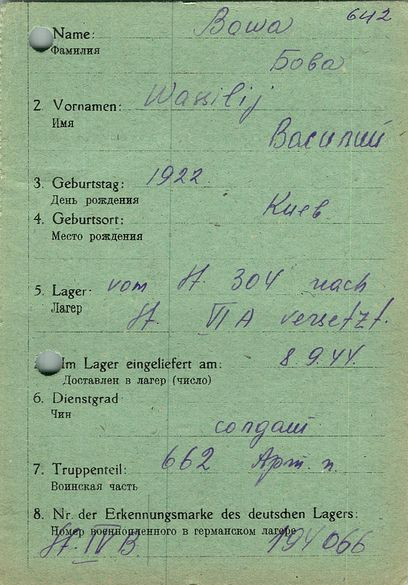 642
Name: Bowa
Фамилия Бова
2. Vornamen: Wassilij
Имя Василий
3. Geburtstag: 1922
День рождения
4. Geburtsort: Киев
Место рождения
5. Lager: vom St. 304 nach
Лагер St. VI A versetzt.
Im Lager eingeliefert am: 8.9.44.
Доставлен в лагер (число)
6. Dienstgrad
Чин солдат
7. Truppenteil: 662 Арт. п.
Воинская часть
8. Nr. der Erkennungsmarke des deutschen Lagers:
Номер военнопленного в германском лагере
St. IV B. 194066